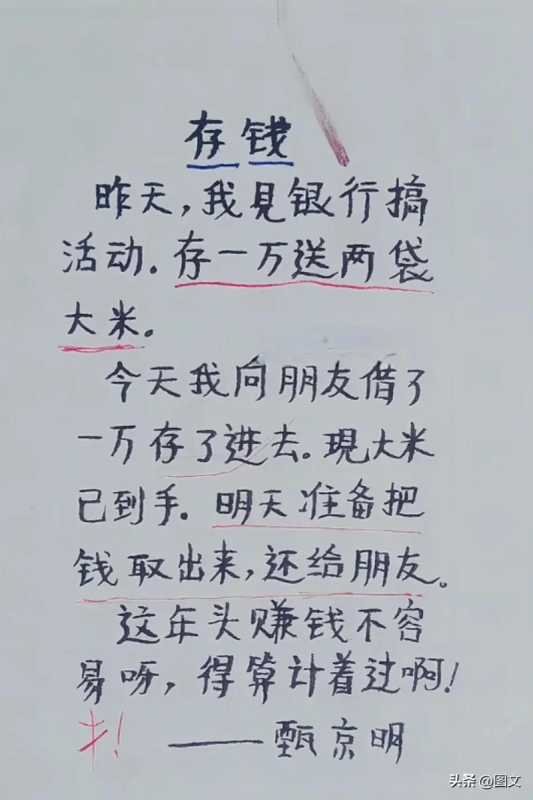 存钱
昨天,我见银行搞
活动.存一万送两袋
大米。
今天我向朋友借了
一万存了进去.現大米
已到手.明天准备把
钱取出来,还给朋友。
这年头赚钱不容
易呀,得算计着过啊!
才!
——甄京明
头条 @图文